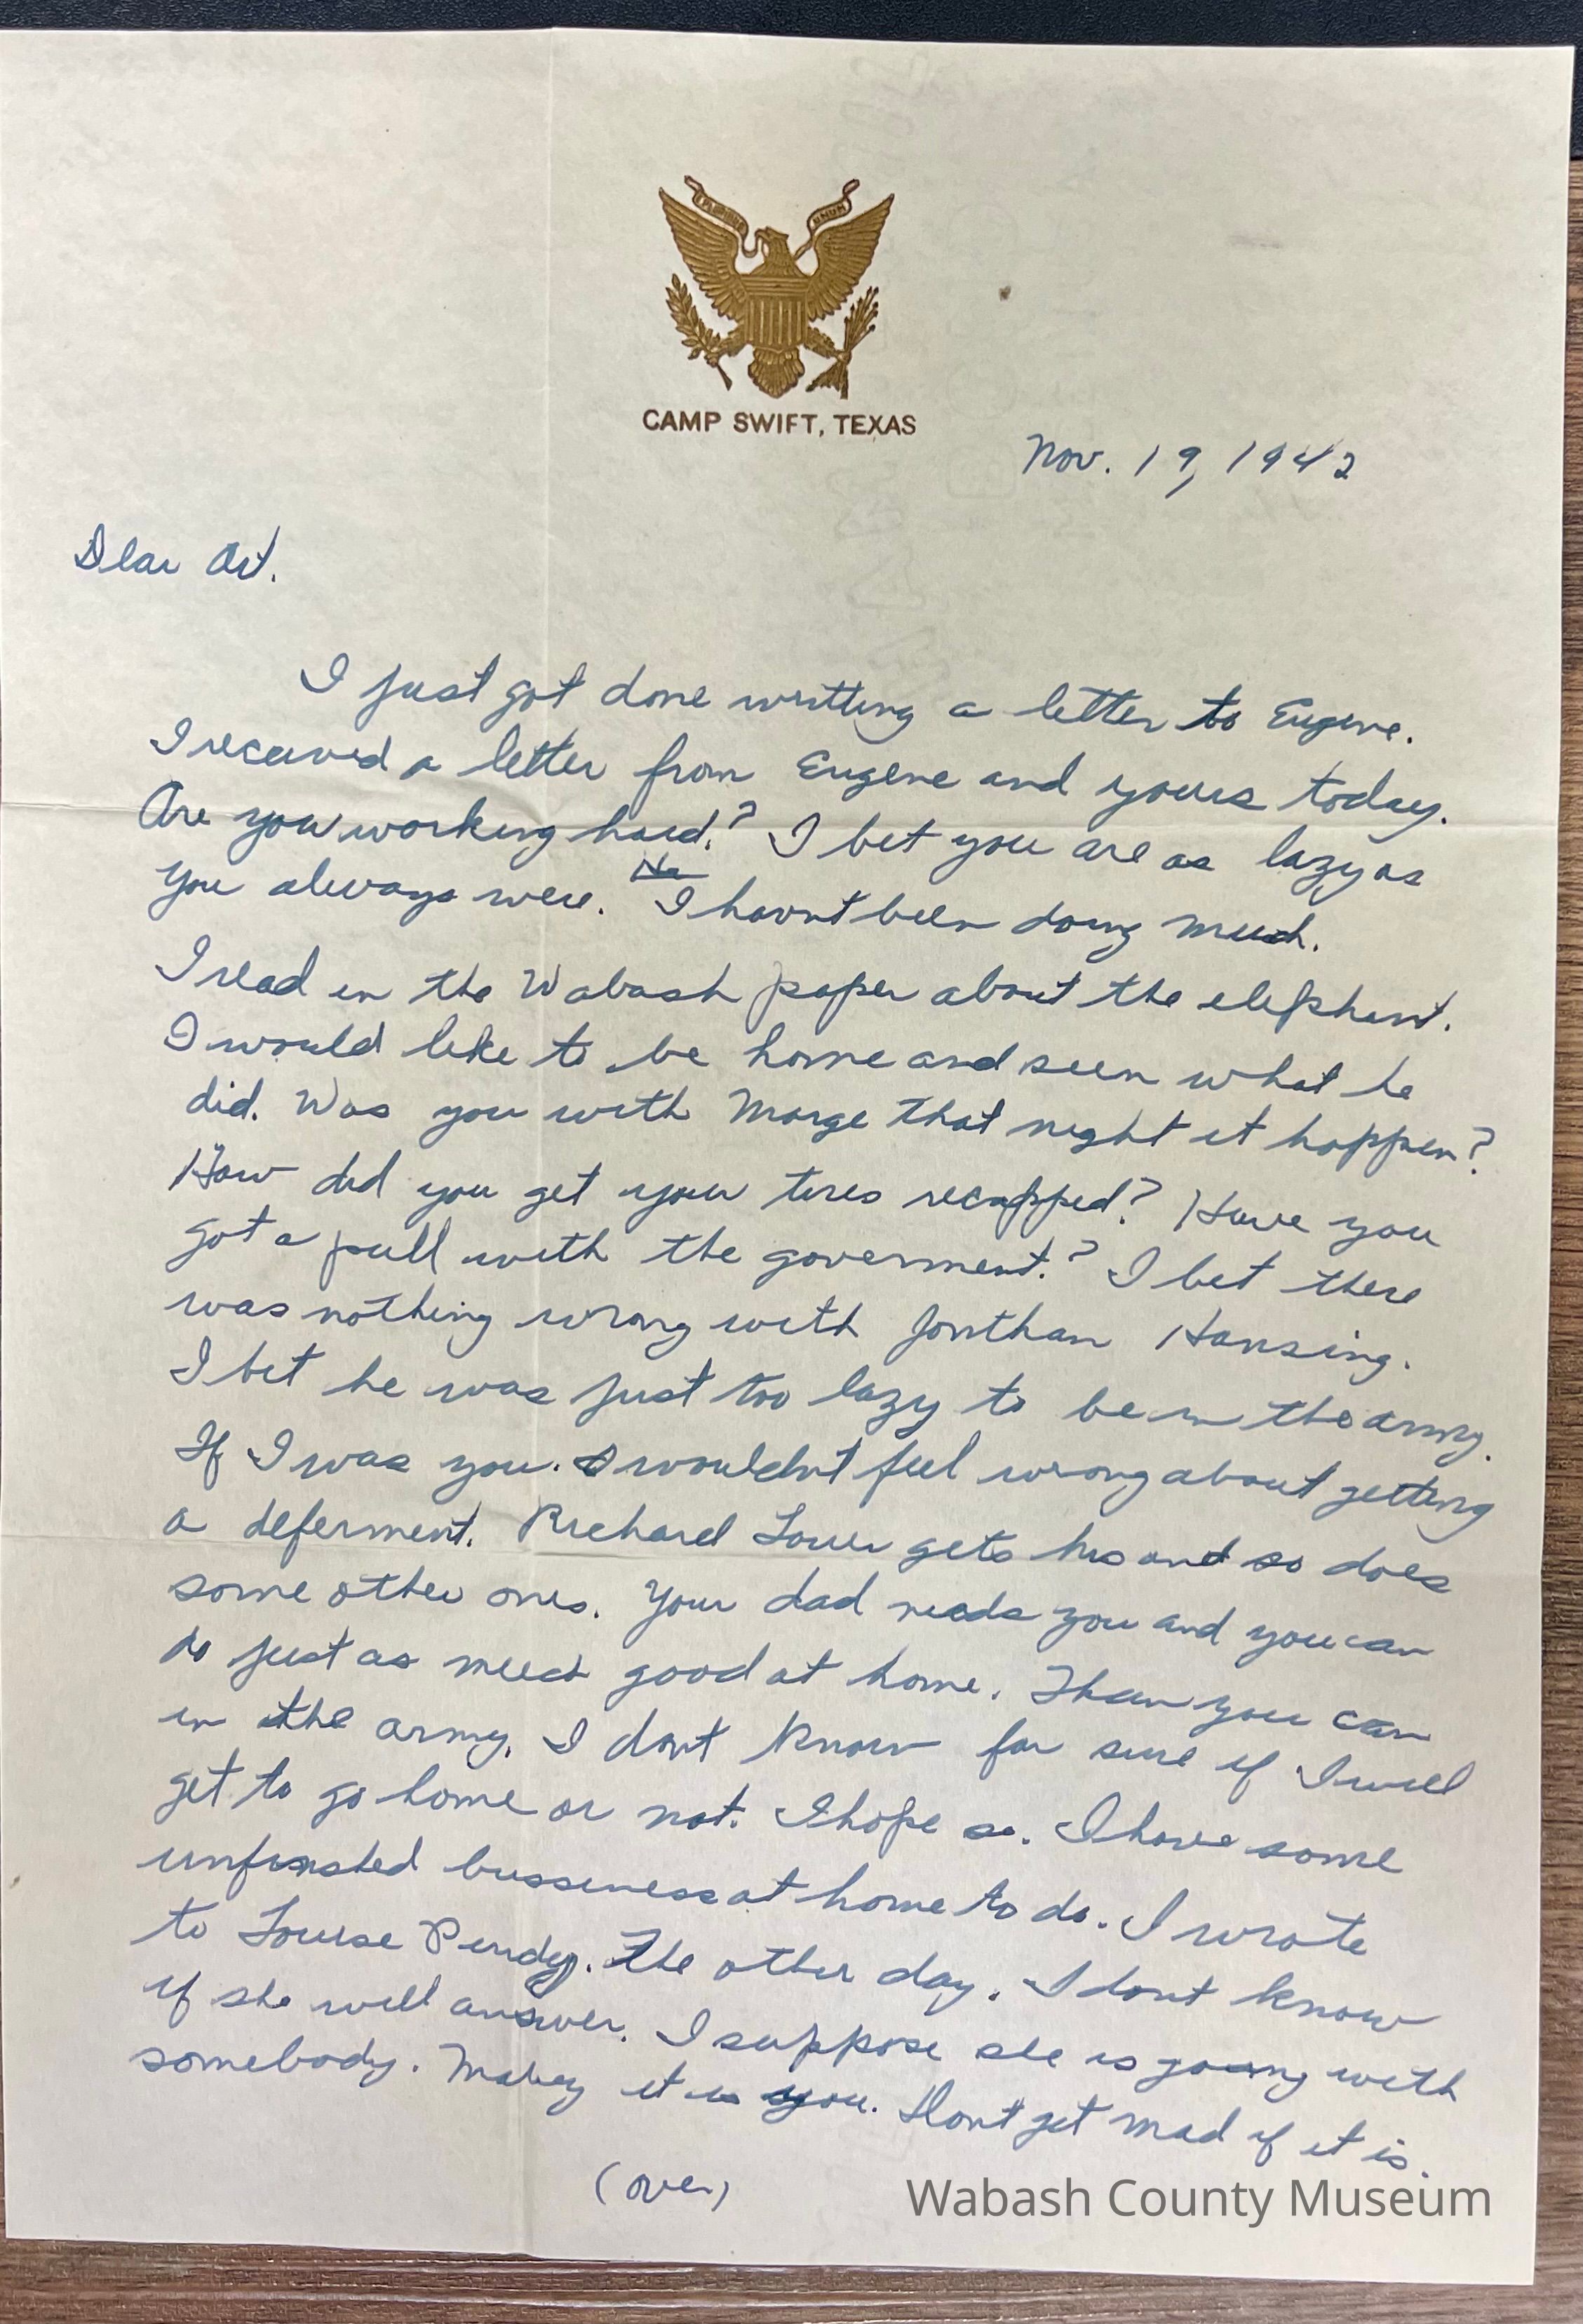 PLURIBUS UNUM
CAMP SWIFT, TEXAS
Nov. 19, 1942
Dear Art.
I just got done writting a letter to Eugene.
I received a letter from Eugene and yours today.
Are you working hard? I bet you are as lazy as
you always were. I havnt been doing much.
I read in the Wabash paper about the elephant.
I would like to be home and seen what he
did. Was you with Marge that night it happen?
How did you get your tires recapped? Have you
got a pull with the goverment? I bet there
was nothing wrong with Jonthan Hansing.
I bet he was just too lazy to be in the army.
If I was you. I wouldnt feel wrong about getting
a deferment. Richard Lower gets his and so does
some other ones. Your dad needs you and you can
do just as much good at home. Than you can
in the army. I dont know for sure if I will
get to go home or not. I hope so. I have some
unfinshed bussiness at home to do. I wrote
to Louise The other day. I dont know
if she will answer. I suppose she is going with
somebody. Mabey it is you. Dont get mad if it is.
(over)
Wabash County Museum